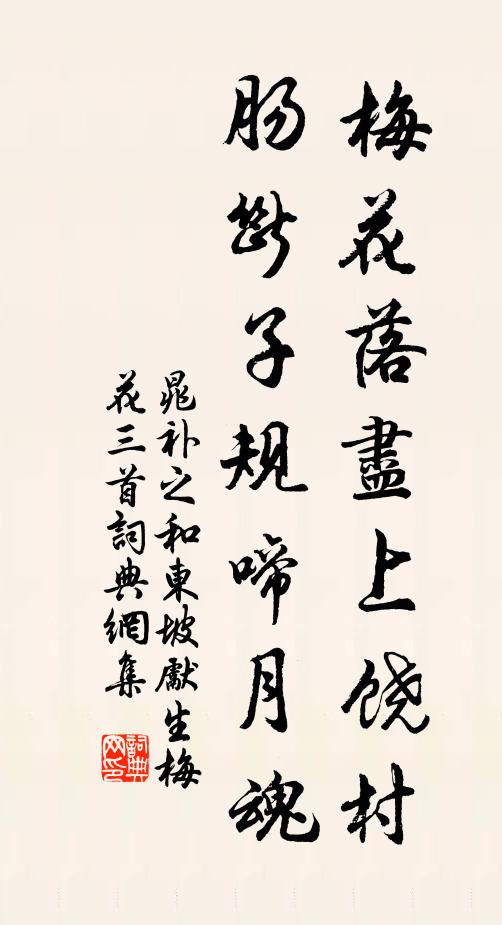 梅花落盡上饶村
肠断子规啼月魂
晁补之和東坡獻生梅
花三首詞典網集
詞典
网印